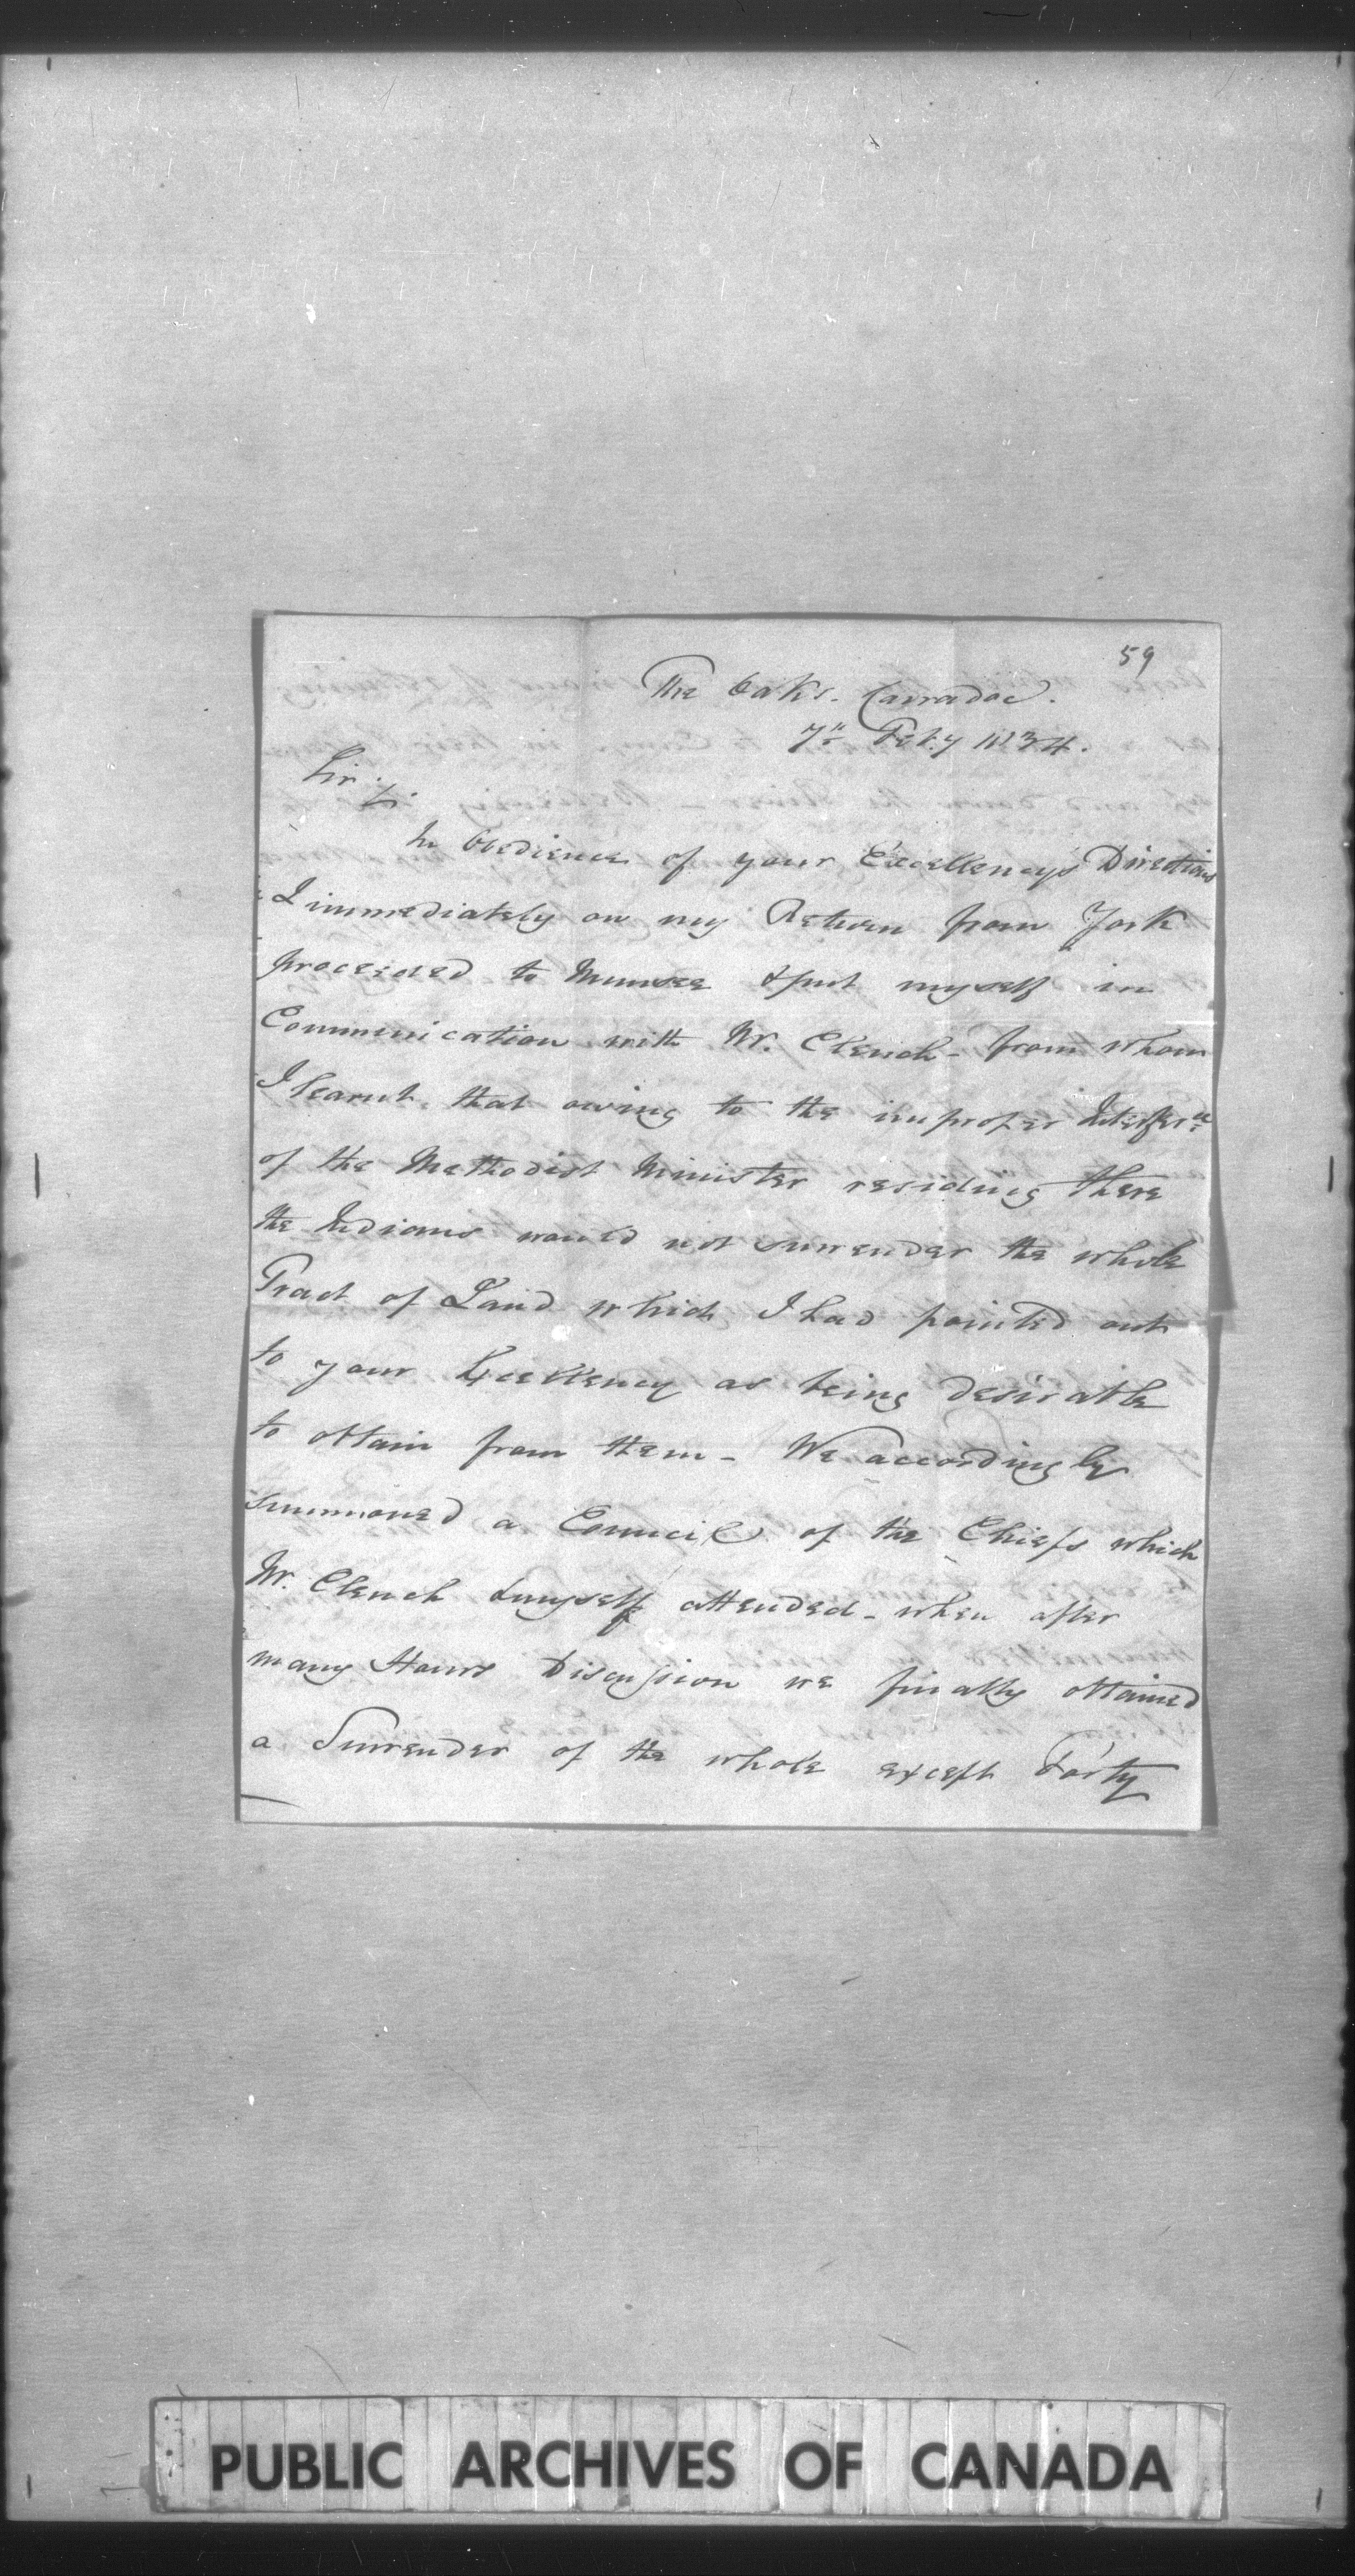 59
The Oaks. Carradoc.
7th Feby 1834.
Sir,
In Obedience of your Excellency's Directions
I immediately on my Return from York
proceeded to Munsee & put myself in
Communication with Mr. Clench - from whom
I learnt that owing to the improper Interfere
of the Methodist Minister residing there
the Indians would not surrender the whole
Tract of Land which I had pointed out
to your Excellency as being desirable
to obtain from them - We accordingly
summoned a Council of the Chiefs which
Mr. Clench & myself attended - when after
many Hours Discussion we finally obtained
a Surrender of the whole except Forty
PUBLIC ARCHIVES OF CANADA